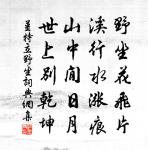 野坐花飛片
溪行水漲痕
山中閒日月
世上別乾坤
姜特立野坐詞典網集